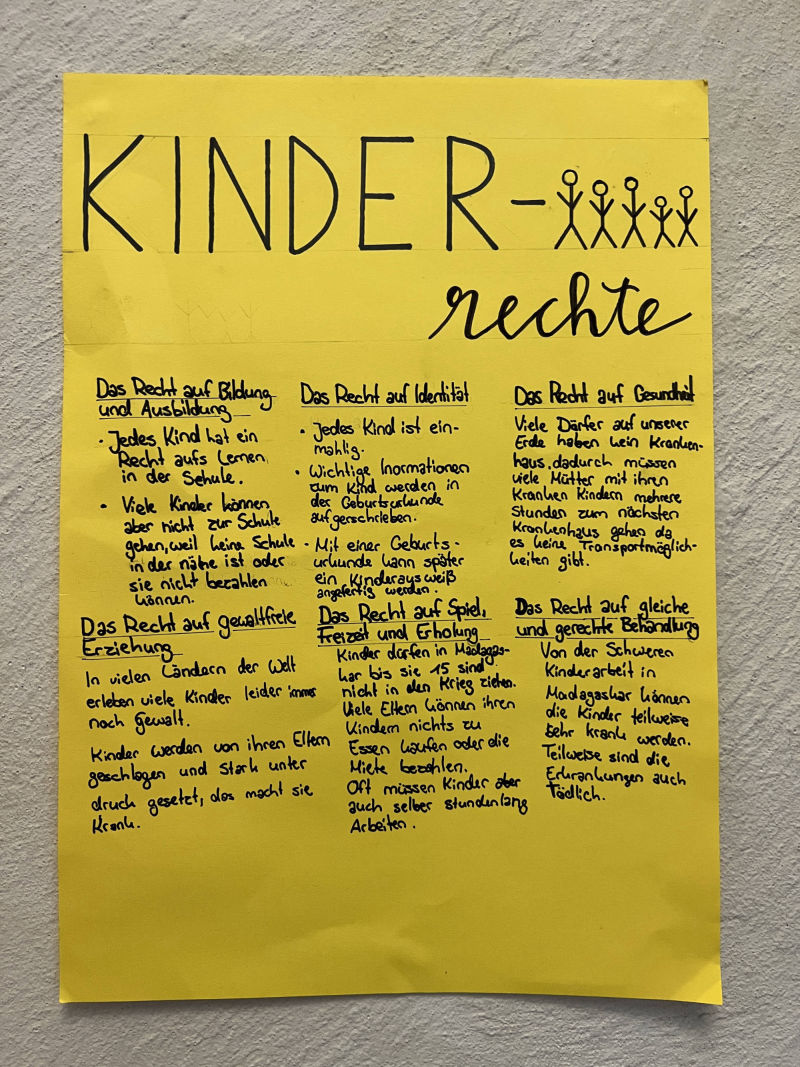 KINDER-
rechte
Das Recht auf Bildung
und Ausbildung
• Jedes Kind hat ein
Recht aufs Lernen
in der Schule.
• Viele Kinder können
aber nicht zur Schule
gehen, weil keine Schule
in der nähe ist oder
sie nicht bezahlen
können.
Das Recht auf Identität
• Jedes Kind ist ein-
mahlig.
• Wichtige Inormationen
zum Kind werden in
der Geburtsurkunde
aufgerschrieben.
• Mit einer Geburts-
urkunde kann später
ein Kinderausweiß
angefertig werden.
Das Recht auf Gesundheit
Viele Dörfer auf unserer
Erde haben kein Kranken-
haus, dadurch müssen
viele Mütter mit ihren
Kranken Kindern mehrere
Stunden zum nächsten
Krankenhaus gehen da
es keine Transportmöglich-
keiten gibt.
Das Recht auf gewaltfreie
Erziehung
In vielen Ländern der Welt
erleben viele Kinder leider immer
noch Gewalt.
Kinder werden von ihren Eltern
geschlagen und stark unter
druck gesetzt, das macht sie
Krank.
Das Recht auf Spiel,
Freizeit und Erholung
Kinder dürfen in Madagas-
kar bis sie 15 sind
nicht in den Krieg ziehen.
Viele Eltern können ihren
Kindern nichts zu
Essen kaufen oder die
Miete bezahlen.
Oft müssen Kinder aber
auch selber stundenlang
Arbeiten.
Das Recht auf gleiche
und gerechte Behandlung
Von der Schweren
Kinderarbeit in
Madagaskar können
die Kinder teilweise
sehr krank werden.
Teilweise sind die
Erkrankungen auch
Tödlich.